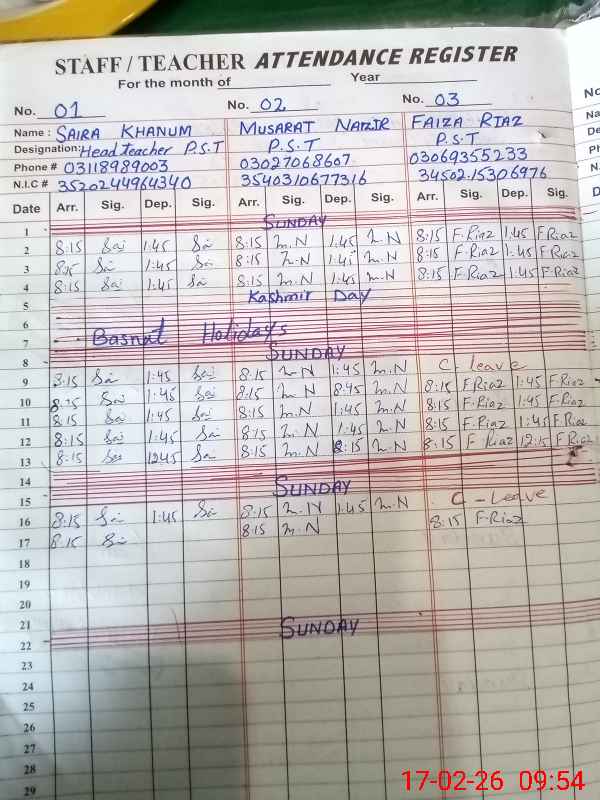 STAFF / TEACHER ATTENDANCE REGISTER
For the month of Year
No. 01 No. 02 No. 03
Name: SAIRA KHANUM MUSARAT NAZIR FAIZA RIAZ
Designation: Head Teacher P.S.T P.S.T P.S.T
Phone # 03118989003 03027068607 03069355233
N.I.C # 3520244964340 3540310677316 34502.15306976
Date Arr. Sig. Dep. Sig. Arr. Sig. Dep. Sig. Arr. Sig. Dep. Sig.
1 SUNDAY
2 8:15 1:45 8:15 M.N 1:45 M.N 8:15 F.Riaz 1:45 F.Riaz
3 8:15 1:45 8:15 M.N 1:45 M.N 8:15 F.Riaz 1:45 F.Riaz
4 8:15 1:45 8:15 M.N 1:45 M.N 8:15 F.Riaz 1:45 F.Riaz
5 Kashmir Day
6
7 Basnat Holidays
8 SUNDAY
9 1:45 8:15 M.N 1:45 M.N C. leave
10 8:15 1:45 8:15 M.N 8:45 M.N 8:15 F.Riaz 1:45 F.Riaz
11 8:15 1:45 8:15 M.N 1:45 M.N 8:15 F.Riaz 1:45 F.Riaz
12 8:15 1:45 8:15 M.N 1:45 M.N 8:15 F.Riaz 1:45 F.Riaz
13 8:15 1245 8:15 M.N 8:15 M.N 8:15 F Riaz 12:15 F Riaz
14
15 SUNDAY
16 8:15 1:45 8:15 M.N 1:45 M.N C - Leave
17 8:15 8:15 M.N 8:15 F.Riaz
18
19
20
21
22 SUNDAY
23
24
25
26
27
28
29
17-02-26 09:54